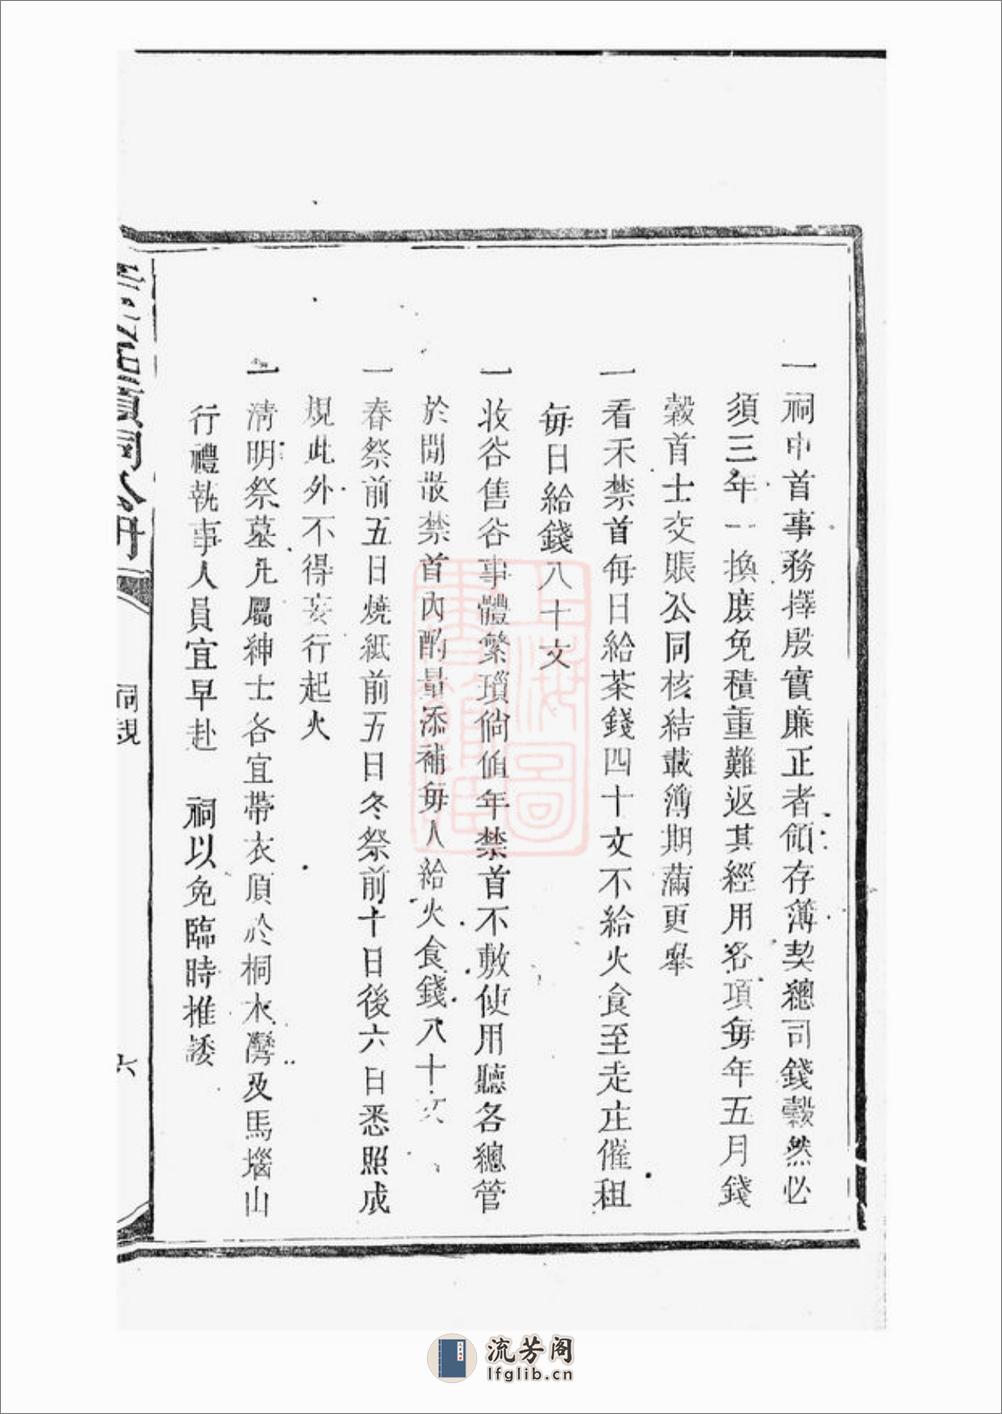 一祠中首事務擇殷實廉正者領存薄契總司錢穀然必
須三年一換庶免積重難返其經用各項每年五月錢
穀首士交賬公同核結載簿期滿更舉
一看禾禁首每日給茶錢四十文不給火食至走庄催租
每日給錢八十文
一收谷售谷事體繁瑣倘值年禁首不敷使用聽各總管
於閒散禁首內酌量添補每人給火食錢八十文
一春祭前五日燒紙前五日冬祭前十日後六日悉照成
規此外不得妄行起火
一清明祭墓凡屬紳士各宜帶衣頂於桐木灣及馬堖山
行禮執事人員宜早赴 祠以免臨時推諉
祠規
六
上海圖書館藏
流芳阁
lfglib.cn